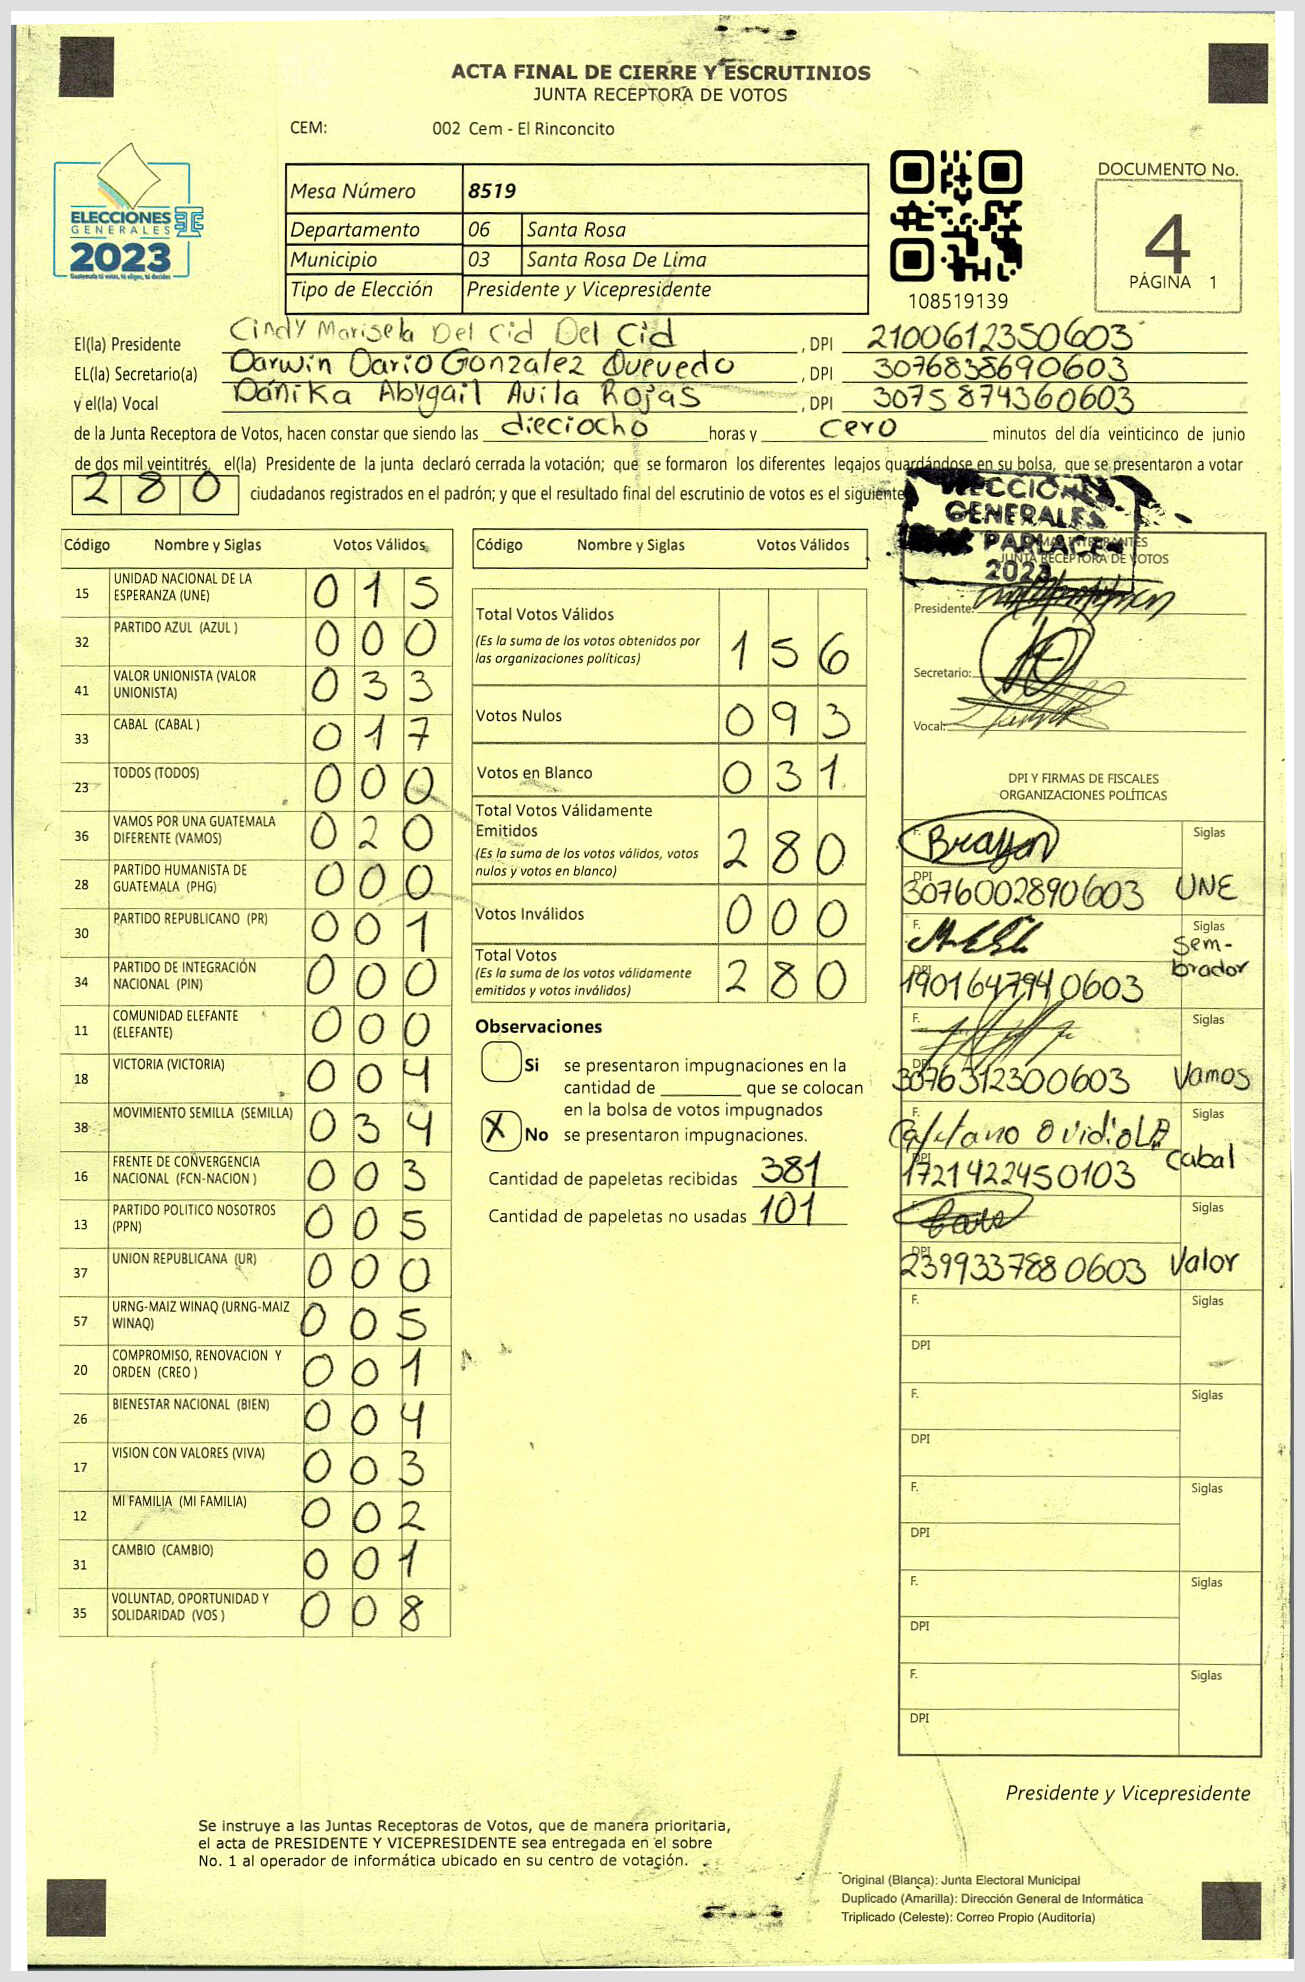 ACTA FINAL DE CIERRE Y ESCRUTINIOS
JUNTA RECEPTORA DE VOTOS
CEM: 002 Cem - El Rinconcito
ELECCIONES
GENERALES
2023
Guatemala tú votas, tú eliges, tú decides
Mesa Número 8519
Departamento 06 Santa Rosa
Municipio 03 Santa Rosa De Lima
Tipo de Elección Presidente y Vicepresidente
108519139
DOCUMENTO No.
4
PÁGINA 1
El(la) Presidente Cindy Marisela Del Cid Del Cid , DPI 2100612350603
EL(la) Secretario(a) Darwin Dario Gonzalez Quevedo , DPI 3076838690603
y el(la) Vocal Dánika Abygail Avila Rojas , DPI 3075874360603
de la Junta Receptora de Votos, hacen constar que siendo las dieciocho horas y cero minutos del día veinticinco de junio
de dos mil veintitrés, el(la) Presidente de la junta declaró cerrada la votación; que se formaron los diferentes legajos guardándose en su bolsa, que se presentaron a votar
280 ciudadanos registrados en el padrón; y que el resultado final del escrutinio de votos es el siguiente
ELECCIONES
GENERALES
PARLACEN
2023
Código Nombre y Siglas Votos Válidos
15 UNIDAD NACIONAL DE LA ESPERANZA (UNE) 015
32 PARTIDO AZUL (AZUL ) 000
41 VALOR UNIONISTA (VALOR UNIONISTA) 033
33 CABAL (CABAL ) 017
23 TODOS (TODOS) 000
36 VAMOS POR UNA GUATEMALA DIFERENTE (VAMOS) 020
28 PARTIDO HUMANISTA DE GUATEMALA (PHG) 000
30 PARTIDO REPUBLICANO (PR) 001
34 PARTIDO DE INTEGRACIÓN NACIONAL (PIN) 000
11 COMUNIDAD ELEFANTE (ELEFANTE) 000
18 VICTORIA (VICTORIA) 004
38 MOVIMIENTO SEMILLA (SEMILLA) 034
16 FRENTE DE CONVERGENCIA NACIONAL (FCN-NACION ) 003
13 PARTIDO POLITICO NOSOTROS (PPN) 005
37 UNION REPUBLICANA (UR) 000
57 URNG-MAIZ WINAQ (URNG-MAIZ WINAQ) 005
20 COMPROMISO, RENOVACION Y ORDEN (CREO ) 001
26 BIENESTAR NACIONAL (BIEN) 004
17 VISION CON VALORES (VIVA) 003
12 MI FAMILIA (MI FAMILIA) 002
31 CAMBIO (CAMBIO) 001
35 VOLUNTAD, OPORTUNIDAD Y SOLIDARIDAD (VOS ) 008
Código Nombre y Siglas Votos Válidos
Total Votos Válidos
(Es la suma de los votos obtenidos por las organizaciones políticas) 156
Votos Nulos 093
Votos en Blanco 031
Total Votos Válidamente Emitidos
(Es la suma de los votos válidos, votos nulos y votos en blanco) 280
Votos Inválidos 000
Total Votos
(Es la suma de los votos válidamente emitidos y votos inválidos) 280
Observaciones
Si se presentaron impugnaciones en la
cantidad de ________ que se colocan
en la bolsa de votos impugnados
X No se presentaron impugnaciones.
Cantidad de papeletas recibidas 381
Cantidad de papeletas no usadas 101
JUNTA RECEPTORA DE VOTOS
Presidente:
Secretario:
Vocal:
DPI Y FIRMAS DE FISCALES
ORGANIZACIONES POLÍTICAS
F. Brayan Siglas
DPI 3076002890603 UNE
F. Siglas
DPI 1901647940603 Sem-
brador
F. Siglas
DPI 3076312300603 Vamos
F. Cayetano Ovidio LA Siglas
DPI 1721422450103 Cabal
F. Siglas
DPI 2399337880603 Valor
F. Siglas
DPI
F. Siglas
DPI
F. Siglas
DPI
F. Siglas
DPI
F. Siglas
DPI
Presidente y Vicepresidente
Se instruye a las Juntas Receptoras de Votos, que de manera prioritaria,
el acta de PRESIDENTE Y VICEPRESIDENTE sea entregada en el sobre
No. 1 al operador de informática ubicado en su centro de votación.
Original (Blanca): Junta Electoral Municipal
Duplicado (Amarilla): Dirección General de Informática
Triplicado (Celeste): Correo Propio (Auditoría)